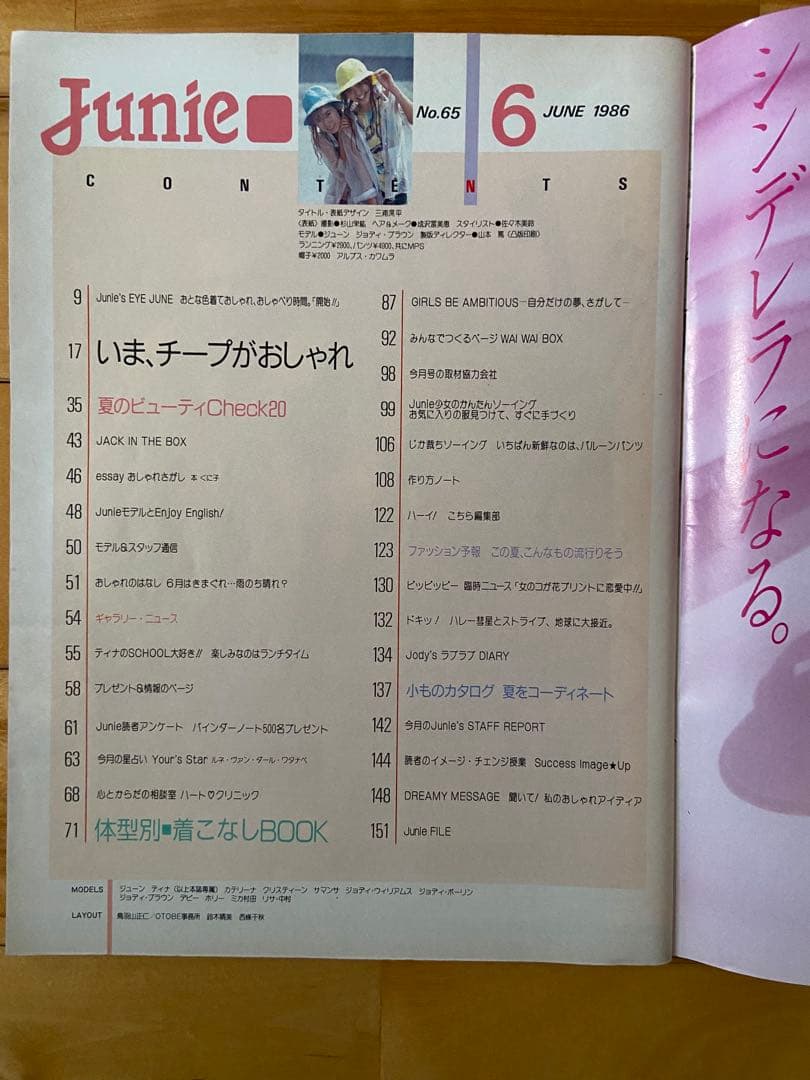 Junie
No.65
6
JUNE 1986
CONTENTS
タイトル・表紙デザイン 三浦滉平
〈表紙〉撮影●杉山栄紘 ヘア&メーク●成沢富美恵 スタイリスト●佐々木美鈴
モデル●ジューン ジョディ・ブラウン 製版ディレクター●山本 篤〈凸版印刷〉
ランニング¥2900、パンツ¥4900、共にMPS
帽子¥2000 アルプス・カワムラ
9 Junie's EYE JUNE おとな色着ておしゃれ、おしゃべり時間。「開始!!」
17 いま、チープがおしゃれ
35 夏のビューティCheck20
43 JACK IN THE BOX
46 essay おしゃれさがし 本 くに子
48 JunieモデルとEnjoy English!
50 モデル&スタッフ通信
51 おしゃれのはなし 6月はきまぐれ…雨のち晴れ?
54 ギャラリー・ニュース
55 ティナのSCHOOL大好き!! 楽しみなのはランチタイム
58 プレゼント&情報のページ
61 Junie読者アンケート バインダーノート500名プレゼント
63 今月の星占い Your's Star ルネ・ヴァン・ダール・ワタナベ
68 心とからだの相談室 ハート♡クリニック
71 体型別■着こなしBOOK
87 GIRLS BE AMBITIOUS—自分だけの夢、さがして—
92 みんなでつくるページ WAI WAI BOX
98 今月号の取材協力会社
99 Junie少女のかんたんソーイング
お気に入りの服見つけて、すぐに手づくり
106 じか裁ちソーイング いちばん新鮮なのは、バルーンパンツ
108 作り方ノート
122 ハーイ! こちら編集部
123 ファッション予報 この夏、こんなもの流行りそう
130 ピッピッピー 臨時ニュース「女のコが花プリントに恋愛中!!」
132 ドキッ! ハレー彗星とストライプ、地球に大接近。
134 Jody's ラブラブ DIARY
137 小ものカタログ 夏をコーディネート
142 今月のJunie's STAFF REPORT
144 読者のイメージ・チェンジ授業 Success Image★Up
148 DREAMY MESSAGE 聞いて! 私のおしゃれアイディア
151 Junie FILE
MODELS ジューン ティナ〈以上本誌専属〉 カテリーナ クリスティーン サマンサ ジョディ・ウィリアムス ジョディ・ボーリン
ジョディ・ブラウン デビー ホリー ミカ村田 リサ・中村
LAYOUT 鳥羽山正仁/OTOBE事務所 鈴木晴美 西條千秋
シンデレラになる。